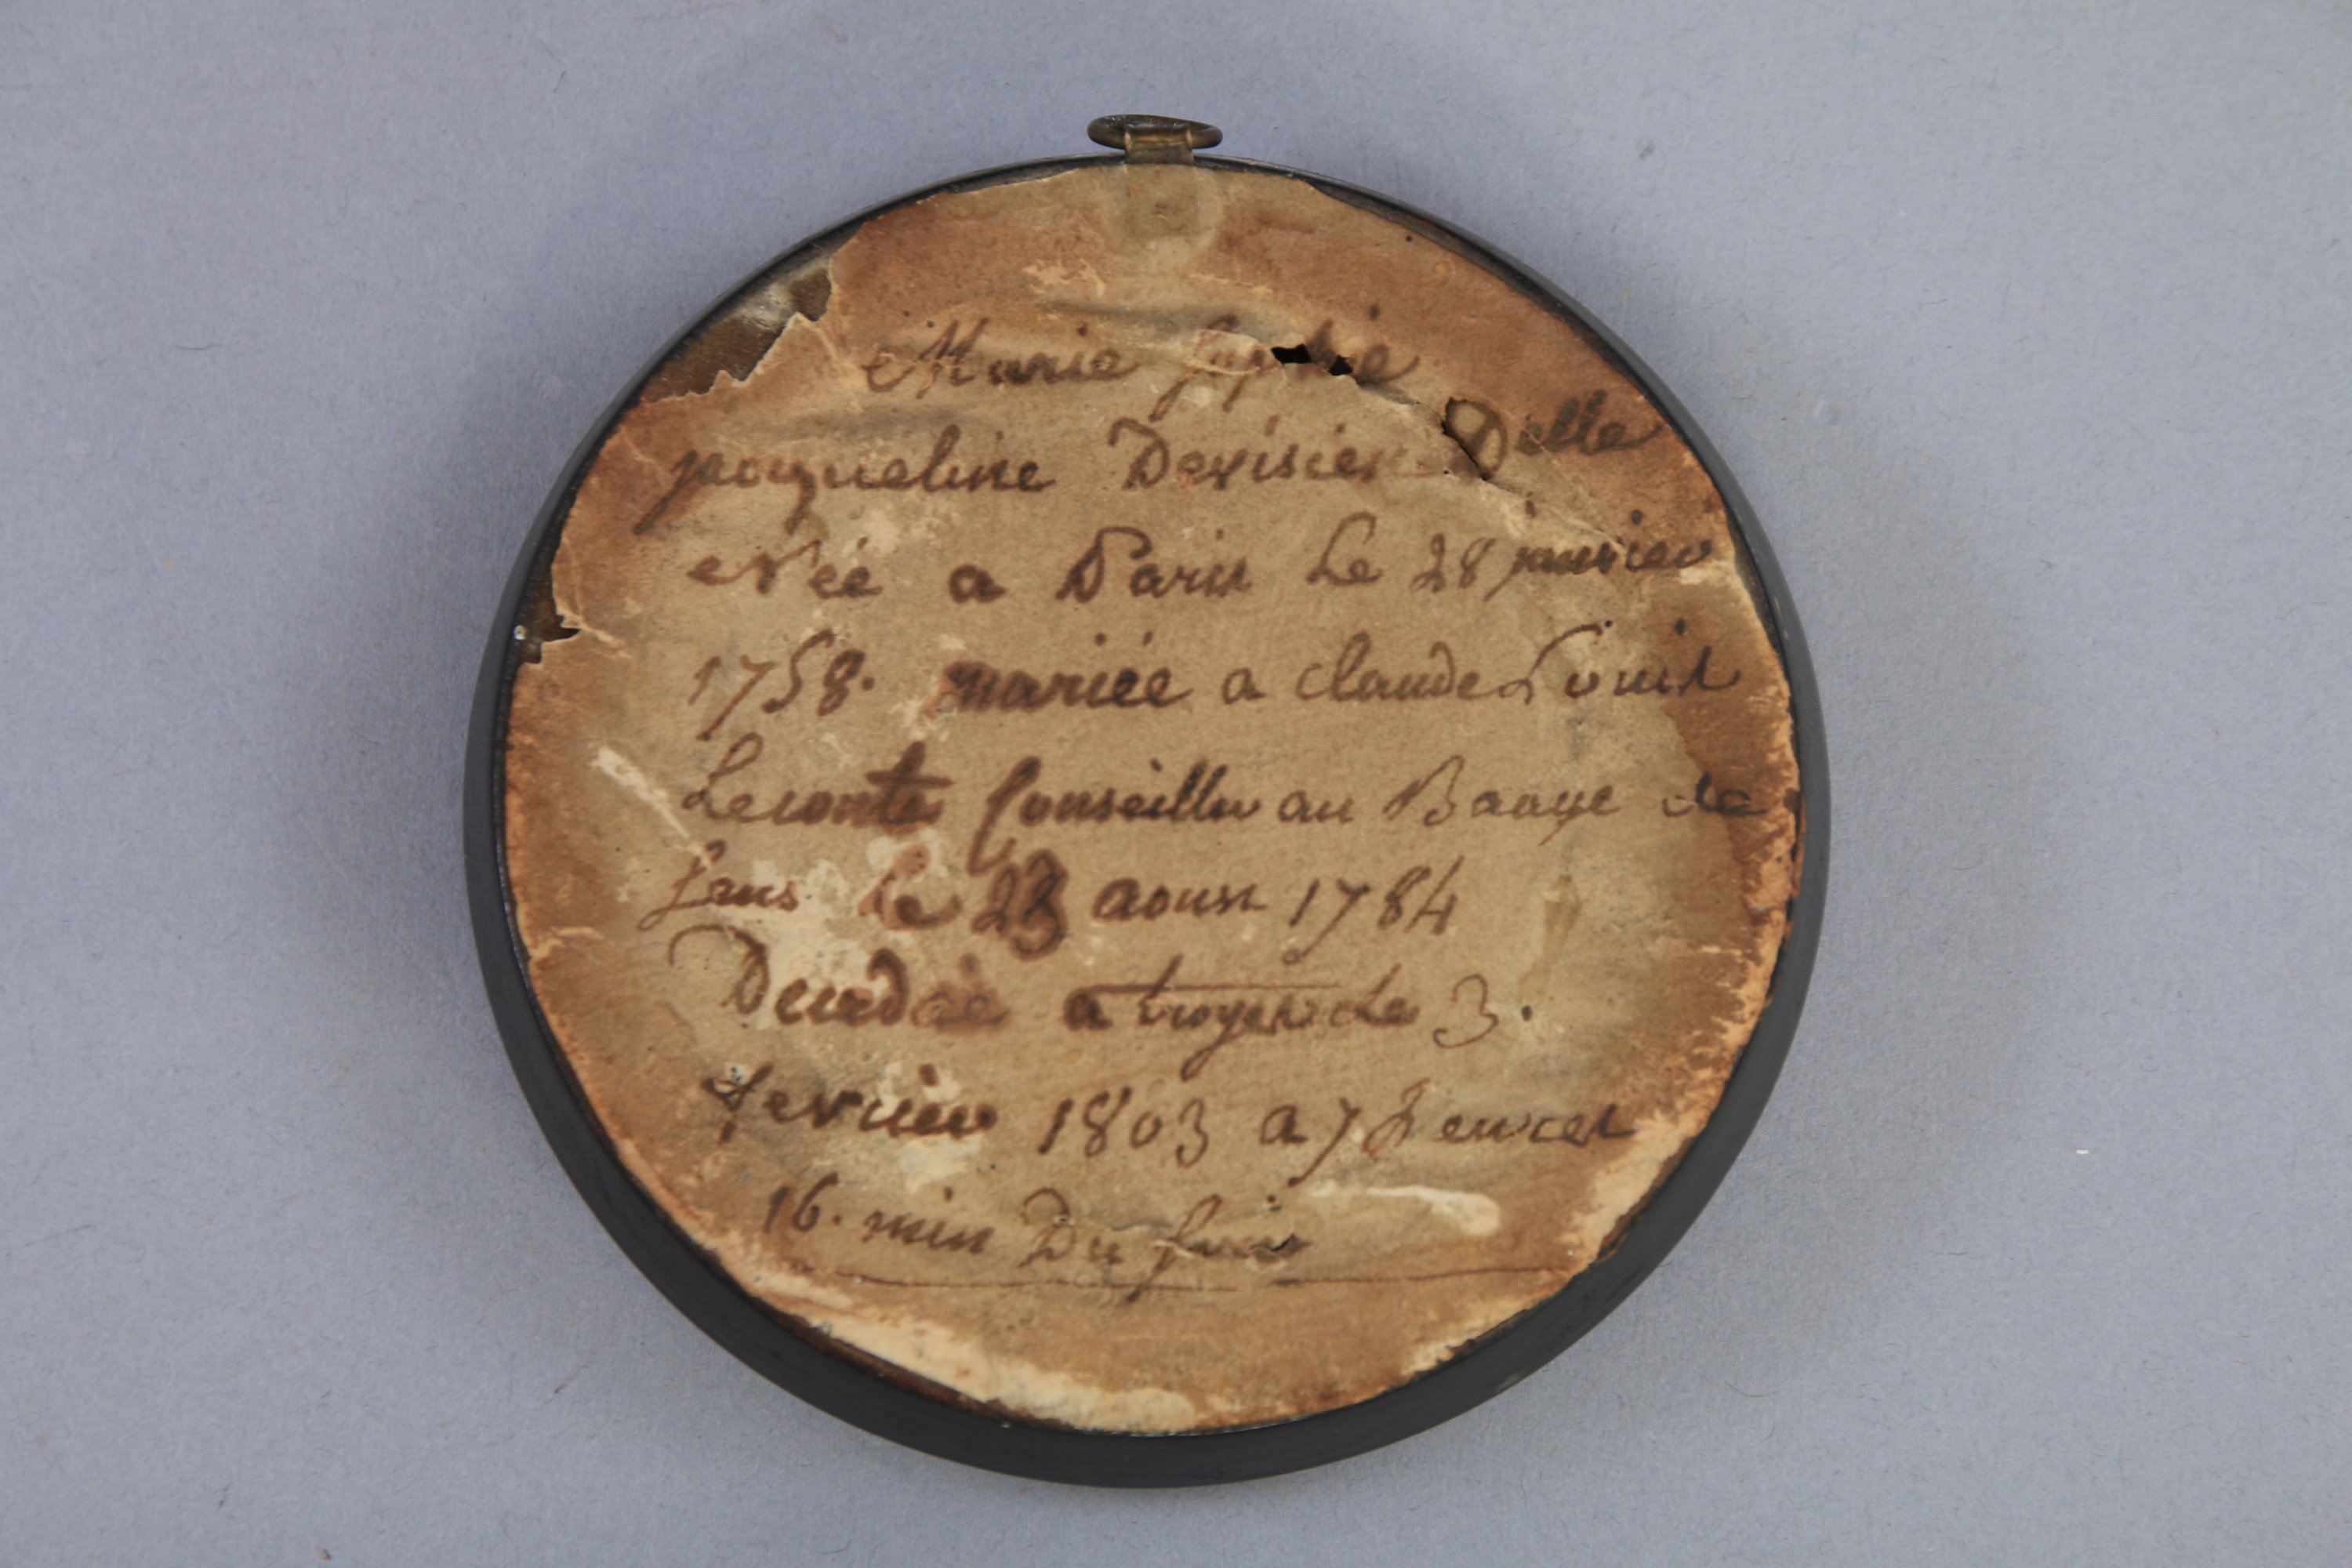 Marie Sophie
jacqueline Devisien Delle
Née a Paris Le 28 janvier
1758. mariée a claude Louis
Leconte Conseiller au Baage de
Sens Le 23 aoust 1784
Decedée a troyes Le 3.
fevrier 1803 a 7 heures
16. min Du soir